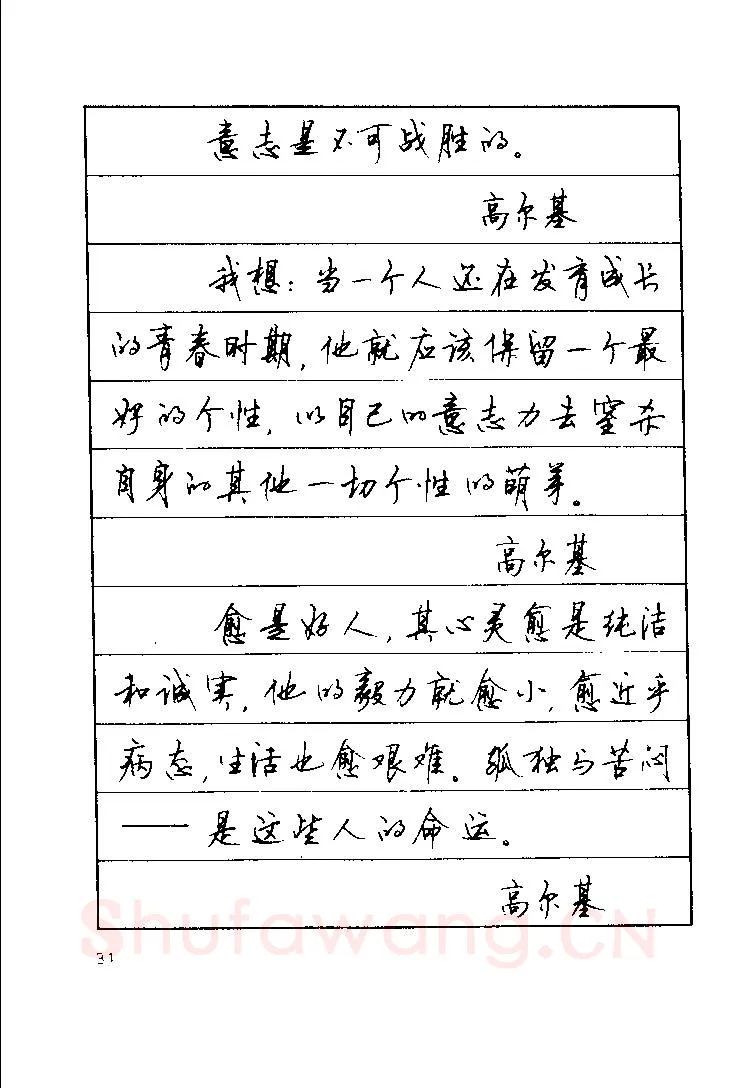 意志是不可战胜的。
高尔基
我想：当一个人还在发育成长
的青春时期，他就应该保留一个最
好的个性，以自己的意志力去窒杀
自身的其他一切个性的萌芽。
高尔基
愈是好人，其心灵愈是纯洁
和诚实，他的毅力就愈小，愈近乎
病态，生活也愈艰难。孤独与苦闷
——是这些人的命运。
高尔基
Shufawang.CN
31